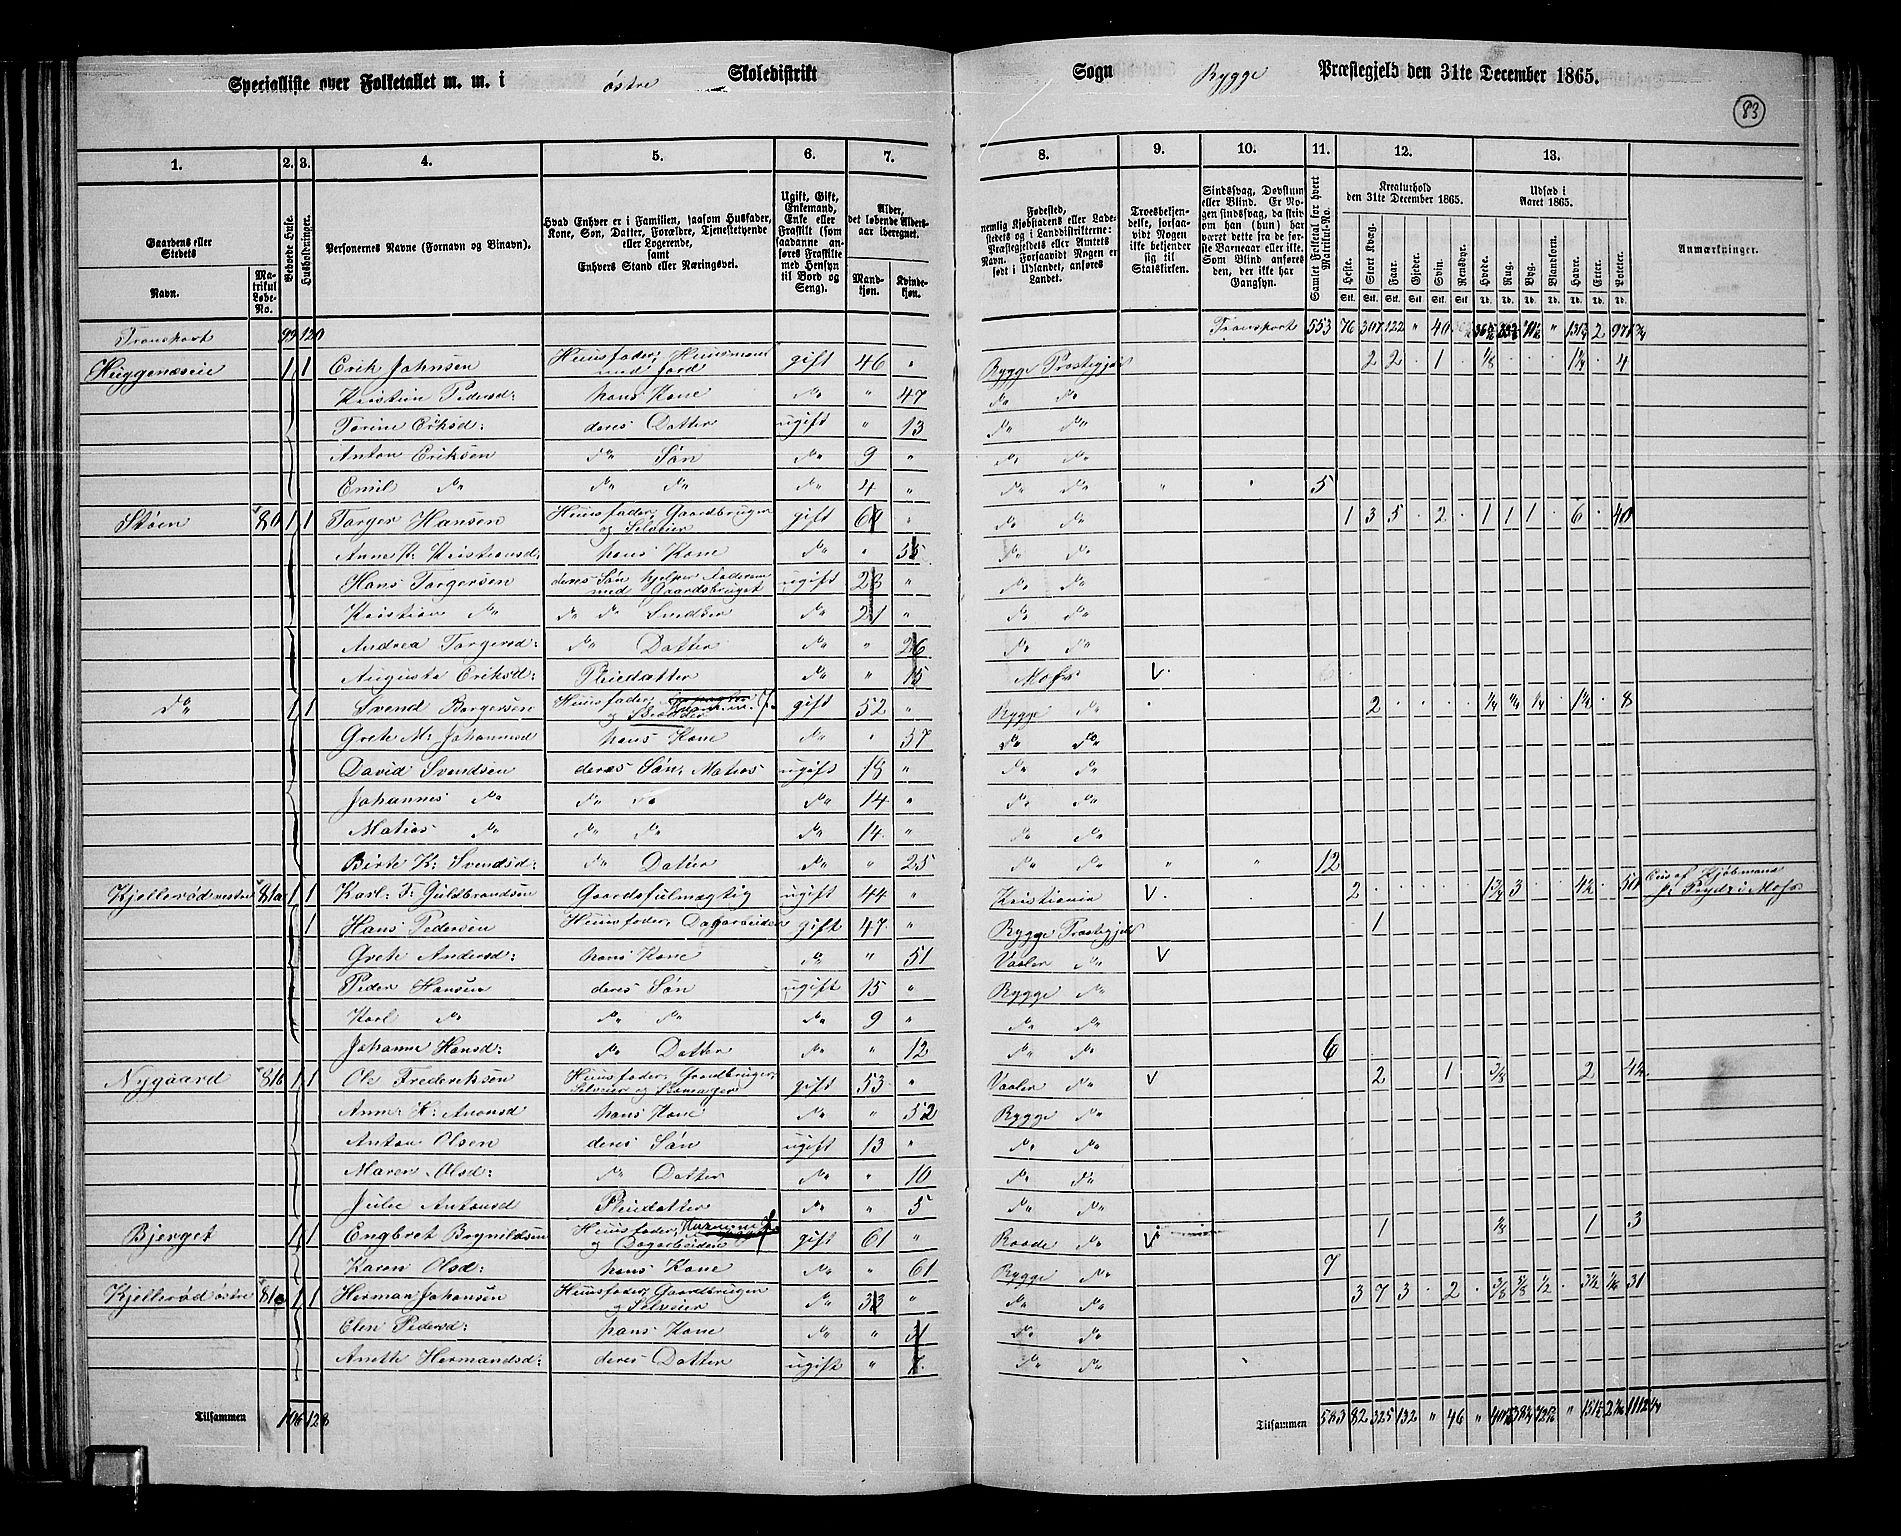 Specialliste over Folketallet m. m. i østre Skoledistrikt Sogn Rygge Præstegjeld den 31te December 1865.
83
1. 2. 3. 4. 5. 6. 7. 8. 9. 10. 11. 12. 13.
Gaardens eller Stedets Navn.
Matrikul Løbe-No.
Beboede Huse.
Husholdninger.
Personernes Navne (Fornavn og Binavn).
Hvad Enhver er i Familien, saasom Husfader, Kone, Søn, Datter, Forældre, Tjenestetyende eller Logerende, samt Enhvers Stand eller Næringsvei.
Ugift, Gift, Enkemand, Enke eller Fraskilt (som saadanne anføres Fraskilte med Hensyn til Bord og Seng).
Alder, det løbende Aldersaar iberegnet.
Mandkjøn. Kvindekjøn.
Fødested, nemlig Kjøbstadens eller Ladestedets og i Landdistrikterne: Præstegjeldets eller Amtets Navn. Forsaavidt Nogen er født i Udlandet, anføres Landet.
Troesbekjendelse, forsaavidt Nogen ikke bekjender sig til Statskirken.
Sindssvag, Døvstum eller Blind. Er Nogen sindssvag, da skriv om han (hun) har været dette fra de første Barneaar eller ikke. Som Blind anføres den, der ikke har Gangsyn.
Samlet Folketal for hvert Matrikul-No.
Kreaturhold den 31te December 1865.
Heste. Stort Kvæg. Faar. Gjeder. Svin. Rensdyr.
Udsæd i Aaret 1865.
Hvede. Rug. Byg. Blandkorn. Havre. Erter. Poteter.
Anmærkninger.
Transport 99 120 Transport 553 76 307 122 " 40
Huggenæseie 1 1 Erik Johnsen Huusfader, Huusmand med Jord gift 46 " Rygge Prestegjæl 2 2 . 1 . 1/8 . . . 1 1/4 . 4
Kristine Pedersd: hans Kone do " 47 do do
Torine Eriksd: deres Datter ugift " 13 do do
Anton Eriksen do Søn do 9 " do do
Emil do do do do 4 " do do " " 5
Støen 80 1 1 Torger Hansen Huusfader, Gaardbruger og Selveier gift 60 " do do 1 3 5 . 2 . 1 1 1 . 6 . 40
Anne K: Kristiansd: hans Kone do " 55 do do
Hans Torgersen deres Søn hjelper Faderen med Gaardsbruget ugift 28 " do do
Kristian do do do Snedker do 21 " do do
Andrea Torgersd: do Datter do " 26 do do
Auguste Eriksd: Pleiedatter do " 15 Moss V.
do 1 1 Svend Borgersen Huusfader, gift 52 " Rygge do 2 . . . . 1/4 3/4 1/4 . 1 1/4 . 8
Grete M: Johannesd hans Kone do " 57 do do
David Svendsen deres Søn, Matros ugift 18 " do do
Johannes do do do do 14 " do do
Matias do do do do 14 " do do
Birte K: Svendsd: do Datter do " 25 do do " " 12
Kjellerød vestre 81a 1 1 Karl: F: Guldbrandsen Gaardsfulmægtig ugift 44 " Kristiania V. 2 . . . . . 1 3/4 3 . . 4 1/2 . 50 Eies af Kjøbmand Prydz i Moss
1 Hans Pedersen Huusfader, Dagarbeider gift 47 " Rygge Prestegjeld 1
Grete Andersd: hans Kone do " 51 Vaaler do V
Peder Hansen deres Søn ugift 15 " Rygge do
Karl do do do do 9 " do do
Johanne Hansd: do Datter do " 12 do do 6
Nygaard 81b 1 1 Ole Frederiksen Huusfader, Gaardbruger, Selveier og gift 53 " Vaaler do V 2 1 3/8 2 . 4
Anne K: hans Kone do " 52 Rygge do
Anton Olsen deres Søn ugift 13 " do do
Maren Olsd: do Datter do " 10 do do
Julie Antonsd Pleiedatter do " 5 do do
Bjerget 1 1 Engbret Huusfader, og Dagarbeider gift 61 " Raade do V 1 1 . 3
Karen Olsd: hans Kone do " 61 Rygge do 7
Kjellerød østre 81c 1 1 Herman Johansen Huusfader, Gaardbruger og Selveier do 33 " do do 3 7 3 . 2 . 3/8 5/8 1/2 . 3 1/2 31
Elen Pedersd: hans Kone do " 31 do do
Anette Hermandsd: deres Datter ugift " 7 do do
Tilsammen 106 128 Tilsammen 583 82 325 132 " 46 "